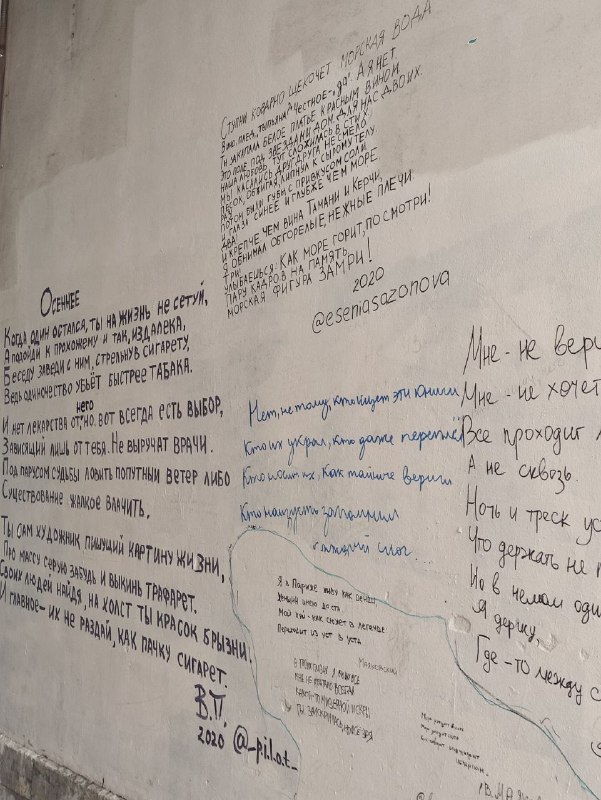 Ступни коварно щекочет морская вода
Вино, плед, ты пьяна? "Честное- "да". А я нет
Ты закапала белое платье красным вином
Это поле под звездами дом для нас двоих.
Наша любовь тут сложилась в стих
Мы касались друг друга не смело
Песок, обжигая, липнул к сырому телу
Раз!
Потом были губы с привкусом соли
И глаза синее и глубже чем море
Два!
И крепче чем вина Тамани и Керчи,
Я обнимал обгорелые, нежные плечи
Три!
Улыбаешься: как море горит, посмотри!
Пару кадров на память
Морская фигура замри!
2020
@eseniasazonova
Осеннее
Когда один остался, ты на жизнь не сетуй,
А подойди к прохожему и так, издалека,
Беседу заведи с ним, стрельнув сигарету,
Ведь одиночество убьёт быстрее табака.
него
И нет лекарства от, но вот всегда есть выбор,
Зависящий лишь от тебя. Не выручат врачи.
Под парусом судьбы ловить попутный ветер либо
Существование жалкое влачить.
Ты сам художник пишущий картину жизни,
Про массу серую забудь и выкинь трафарет.
Своих людей найдя, на холст ты красок брызни.
И главное- их не раздай, как пачку сигарет.
В.П.
2020 @_pi.l.o.t_
Нет, не тому, кто ищет эти книги
Кто их украл, кто даже переплёл
Кто носит их, как тайные вериги
Кто наизусть запомнил
каждый слог...
Мне - не вери
Мне - не хочет
Все проходит
А не сквозь.
Ночь и треск ус
Что держать не
Но в чемом оди
Я держу.
Где-то между с
Я в Париже живу как денди
Женщин имею до ста
Мой хуй - как сюжет в легенде
Переходит из уст в уста
Маяковский
В.МА